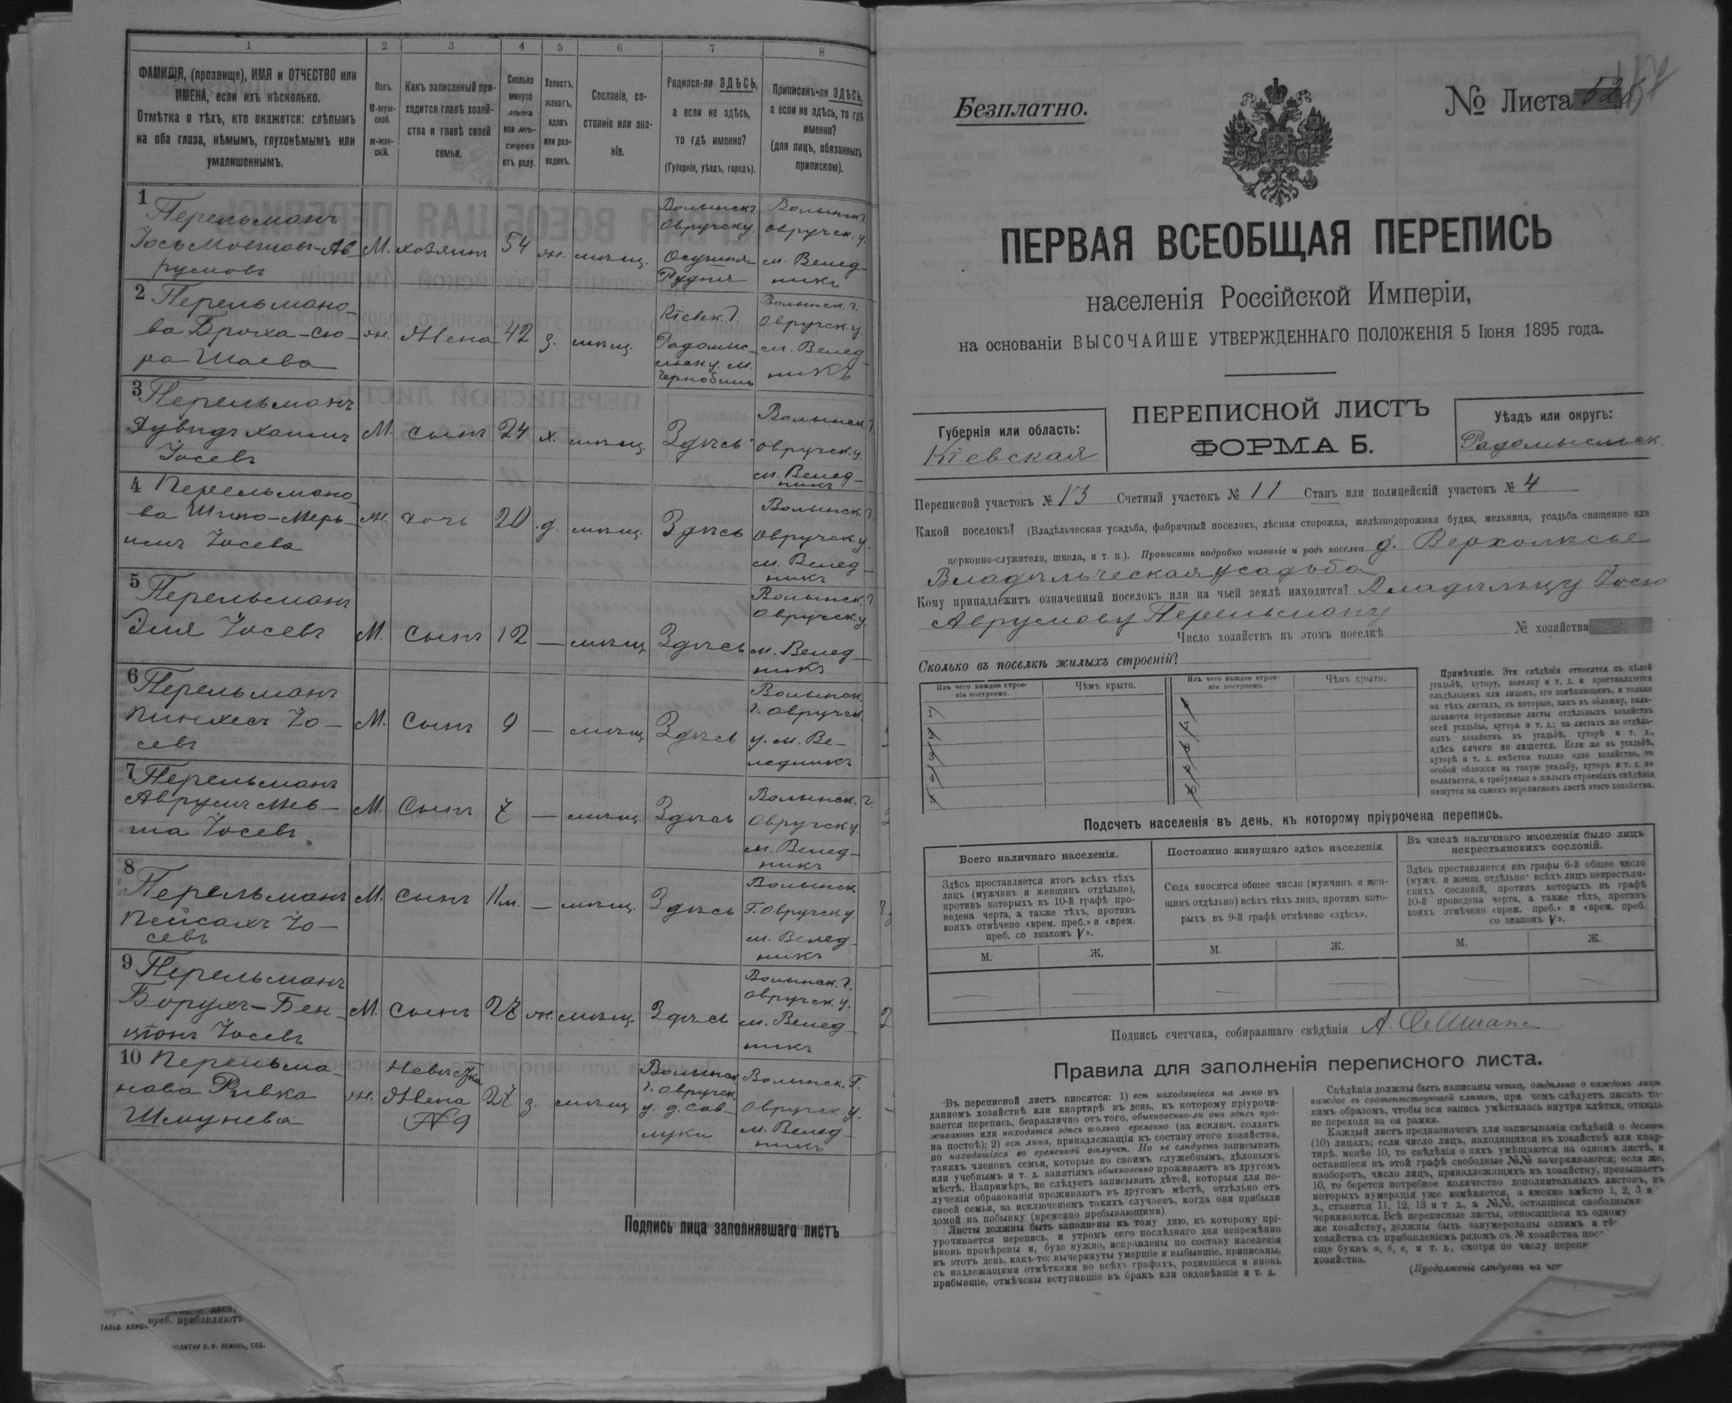 1 2 3 4 5 6 7 8
ФАМИЛІЯ, (прозвище), ИМЯ и ОТЧЕСТВО или
ИМЕНА, если ихъ нѣсколько.
Отмѣтка о тѣхъ, кто окажется: слѣпымъ
на оба глаза, нѣмымъ, глухонѣмымъ или
умалишеннымъ.
Полъ.
М-муж-
ской.
Ж-жен-
скій.
Какъ записанный при-
ходится главѣ хозяй-
ства и главѣ своей
семьи.
Сколько
минуло
лѣтъ
или мѣ-
сяцевъ
отъ роду.
Холостъ,
женатъ,
вдовъ
или раз-
веденъ.
Сословіе, со-
стояніе или зва-
ніе.
Родился-ли ЗДѢСЬ,
а если не здѣсь,
то гдѣ именно?
(Губернія, уѣздъ, городъ).
Приписанъ-ли ЗДѢСЬ,
а если не здѣсь, то гдѣ
именно?
(для лицъ, обязанныхъ
припискою).
1
Перельманъ
Іось Мовшовъ-Ав
румовъ
М. хозяинъ 54 ж. мѣщ.
Волынск г
Овручск у
Рудня
Волынск г
Овручск. у.
м. Велед-
никъ
2 Перельмано-
ва Броха-Сю-
ра Шаева
ж. Жена 42 з. мѣщ.
Кіевск. г
Радомыс-
льск у. м.
Чернобыль
Волынск. г.
Овручск у.
м. Велед-
никъ
3 Перельманъ
Дувидъ Хаимъ
Іосевъ
М. сынъ 24 х. мѣщ. Здѣсь
Волынск. г
Овручск у.
м. Велед-
никъ
4 Перельмано
ва Шино-Мерь-
имъ Іосева
ж. дочь 20 д. мѣщ. Здѣсь
Волынск. г.
Овручск. у.
м. Велед-
никъ
5
Перельманъ
Эля Іосевъ
М. сынъ 12 — мѣщ. Здѣсь
Волынск. г
Овручск у
м. Велед-
никъ
6
Перельманъ
Пинхесъ Іо-
севъ
М. сынъ 9 — мѣщ Здѣсь
Волынск.
г. Овручск
у. м. Ве-
ледникъ
7 Перельманъ
Аврумъ Мов-
ша Іосевъ
М. Сынъ 7 — мѣщ Здѣсь
Волынск. г
Овручск у
м. Велед-
никъ
8
Перельманъ
Пейсахъ Іо-
севъ
М. сынъ 11 м. — мѣщ. Здѣсь
Волынск
Г. Овручск у
м. Велед-
никъ
9
Перельманъ
Борухъ-Бен-
ціонъ Іосевъ
М. сынъ 27 ж. мѣщ. Здѣсь
Волынск. г.
Овручск. у.
м. Велед-
никъ
10 Перельма-
нова Ривка
Шмунева
ж. Невѣстка
Жена
№ 9
27 з. мѣщ
Волынск
г. Овручск
у. д. Сав-
луки
Волынск. г.
Овручск у.
м. Велед-
никъ
Подпись лица заполнявшаго листъ
преб. прибавляютъ
Безплатно.
№ Листа
ПЕРВАЯ ВСЕОБЩАЯ ПЕРЕПИСЬ
населенія Россійской Имперіи,
на основаніи ВЫСОЧАЙШЕ УТВЕРЖДЕННАГО ПОЛОЖЕНІЯ 5 Іюня 1895 года.
Губернія или область:
Кіевская
ПЕРЕПИСНОЙ ЛИСТЪ
ФОРМА Б.
Уѣздъ или округъ:
Радомысльск.
Переписной участокъ № 13 Счетный участокъ № 11 Станъ или полицейскій участокъ № 4
Какой поселокъ? (Владѣльческая усадьба, фабричный поселокъ, лѣсная сторожка, желѣзнодорожная будка, мельница, усадьба священно или
церковно-служителя, школа, и т. п.). Прописать подробно названіе и родъ поселка д. Верхолѣсье
Владѣльческая усадьба
Кому принадлежитъ означенный поселокъ или на чьей землѣ находится? Владѣльцу Іосю
Аврумову Перельману
Число хозяйствъ въ этомъ поселкѣ № хозяйства
Сколько въ поселкѣ жилыхъ строеній?
Изъ чего каждое строе-
ніе построено.
Чѣмъ крыто.
Изъ чего каждое строе-
ніе построено.
Чѣмъ крыто.
Примѣчаніе. Эти свѣдѣнія относятся къ цѣлой
усадьбѣ, хутору, поселку и т. д. и проставляются
владѣльцемъ или лицомъ, его замѣняющимъ, и только
на тѣхъ листахъ, въ которые, какъ въ обложку, вкла-
дываются переписные листы отдѣльныхъ хозяйствъ
всей усадьбы, хутора и т. д.; на листахъ же отдѣль-
ныхъ хозяйствъ въ усадьбѣ, хуторѣ и т. д.,
здѣсь ничего не пишется. Если же въ усадьбѣ,
хуторѣ и т. д. имѣется только одно хозяйство, то
особой обложки на такую усадьбу, хуторъ и т. д. не
полагается, а требуемыя о жилыхъ строеніяхъ свѣдѣнія
пишутся на самомъ переписномъ листѣ этого хозяйства.
Подсчетъ населенія въ день, къ которому пріурочена перепись.
Всего наличнаго населенія.
Здѣсь проставляется итогъ всѣхъ тѣхъ
лицъ (мужчинъ и женщинъ отдѣльно),
противъ которыхъ въ 10-й графѣ про-
ведена черта, а также тѣхъ, противъ
коихъ отмѣчено «врем. преб.» и «врем.
преб. со знакомъ V».
М. Ж.
Постоянно живущаго здѣсь населенія.
Сюда вносится общее число (мужчинъ и жен-
щинъ отдѣльно) всѣхъ тѣхъ лицъ, противъ кото-
рыхъ въ 9-й графѣ отмѣчено «здѣсь».
М. Ж.
Въ числѣ наличнаго населенія было лицъ
некрестьянскихъ сословій.
Здѣсь проставляется изъ графы 6-й общее число
(мужч. и женщ. отдѣльно) всѣхъ лицъ некрестьян-
скихъ сословій, противъ которыхъ въ графѣ
10-й проведена черта, а также тѣхъ, противъ
коихъ отмѣчено «врем. преб.» и «врем. преб.
со знакомъ V».
М. Ж.
— — — — — —
Подпись счетчика, собиравшаго свѣдѣнія
Правила для заполненія переписного листа.
Въ переписной листъ вносятся: 1) всѣ находящіеся на лицо въ
данномъ хозяйствѣ или квартирѣ въ день, къ которому пріурочи-
вается перепись, безразлично отъ того, обыкновенно-ли они здѣсь про-
живаютъ или находятся здѣсь только временно (за исключ. солдатъ
на постоѣ); 2) всѣ лица, принадлежащія къ составу этого хозяйства,
но находящіяся во временной отлучкѣ. Но не слѣдуетъ записывать
такихъ членовъ семьи, которые по своимъ служебнымъ, дѣловымъ
или учебнымъ и т. д. занятіямъ обыкновенно проживаютъ въ другомъ
мѣстѣ. Напримѣръ, не слѣдуетъ записывать дѣтей, которыя для по-
лученія образованія проживаютъ въ другомъ мѣстѣ, отдѣльно отъ
своей семьи, за исключеніемъ такихъ случаевъ, когда они прибыли
домой на побывку (временно пребывающими).
Листы должны быть заполнены къ тому дню, къ которому прі-
урочивается перепись, и утромъ сего послѣдняго дня непремѣнно
вновь провѣрены и, буде нужно, исправлены по составу населенія
въ этотъ день, какъ-то: вычеркнуты умершіе и выбывшіе, приписаны,
съ надлежащими отмѣтками во всѣхъ графахъ, родившіеся и вновь
прибывшіе, отмѣчены вступившіе въ бракъ или овдовѣвшіе и т. д.
Свѣдѣнія должны быть написаны четко, отдѣльно о каждомъ лицѣ
каждое въ соотвѣтствующей клѣткѣ, при чемъ слѣдуетъ писать та-
кимъ образомъ, чтобы вся запись умѣстилась внутри клѣтки, отнюдь
не переходя за ея рамки.
Каждый листъ предназначенъ для записыванія свѣдѣній о десяти
(10) лицахъ; если число лицъ, находящихся въ хозяйствѣ или квар-
тирѣ, менѣе 10, то свѣдѣнія о нихъ умѣщаются на одномъ листѣ, и
оставшіеся въ этой графѣ свободные №№ зачеркиваются; если же,
наоборотъ, число лицъ, принадлежащихъ къ хозяйству, превышаетъ
10, то берется потребное количество дополнительныхъ листовъ, въ
которыхъ нумерація уже измѣняется, а именно вмѣсто 1, 2, 3 и
д., ставится 11, 12, 13 и т. д., а №№, оставшіеся свободными
черкиваются. Всѣ переписные листы, относящіеся къ одному
же хозяйству, должны быть занумерованы однимъ и тѣ-
хозяйства съ прибавленіемъ рядомъ съ № хозяйства пос
еще буквъ а, б, в, и т. д., смотря по числу перепи
хозяйства.
(Продолженіе слѣдуетъ на чет